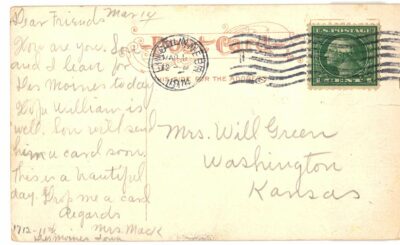 Mar 14
Dear Friends
How are you. Lou
and I leave for
Des Moines to day
Hope William is
well. Lou will send
him a card soon.
This is a beautiful
day. Drop me a card
Regards
Mrs. Mack
1712-11th
Des Moines Iowa
Post Card
FOR THE ADDRESS
U.S. POSTAGE
Mrs. Will Green
Washington
Kansas.